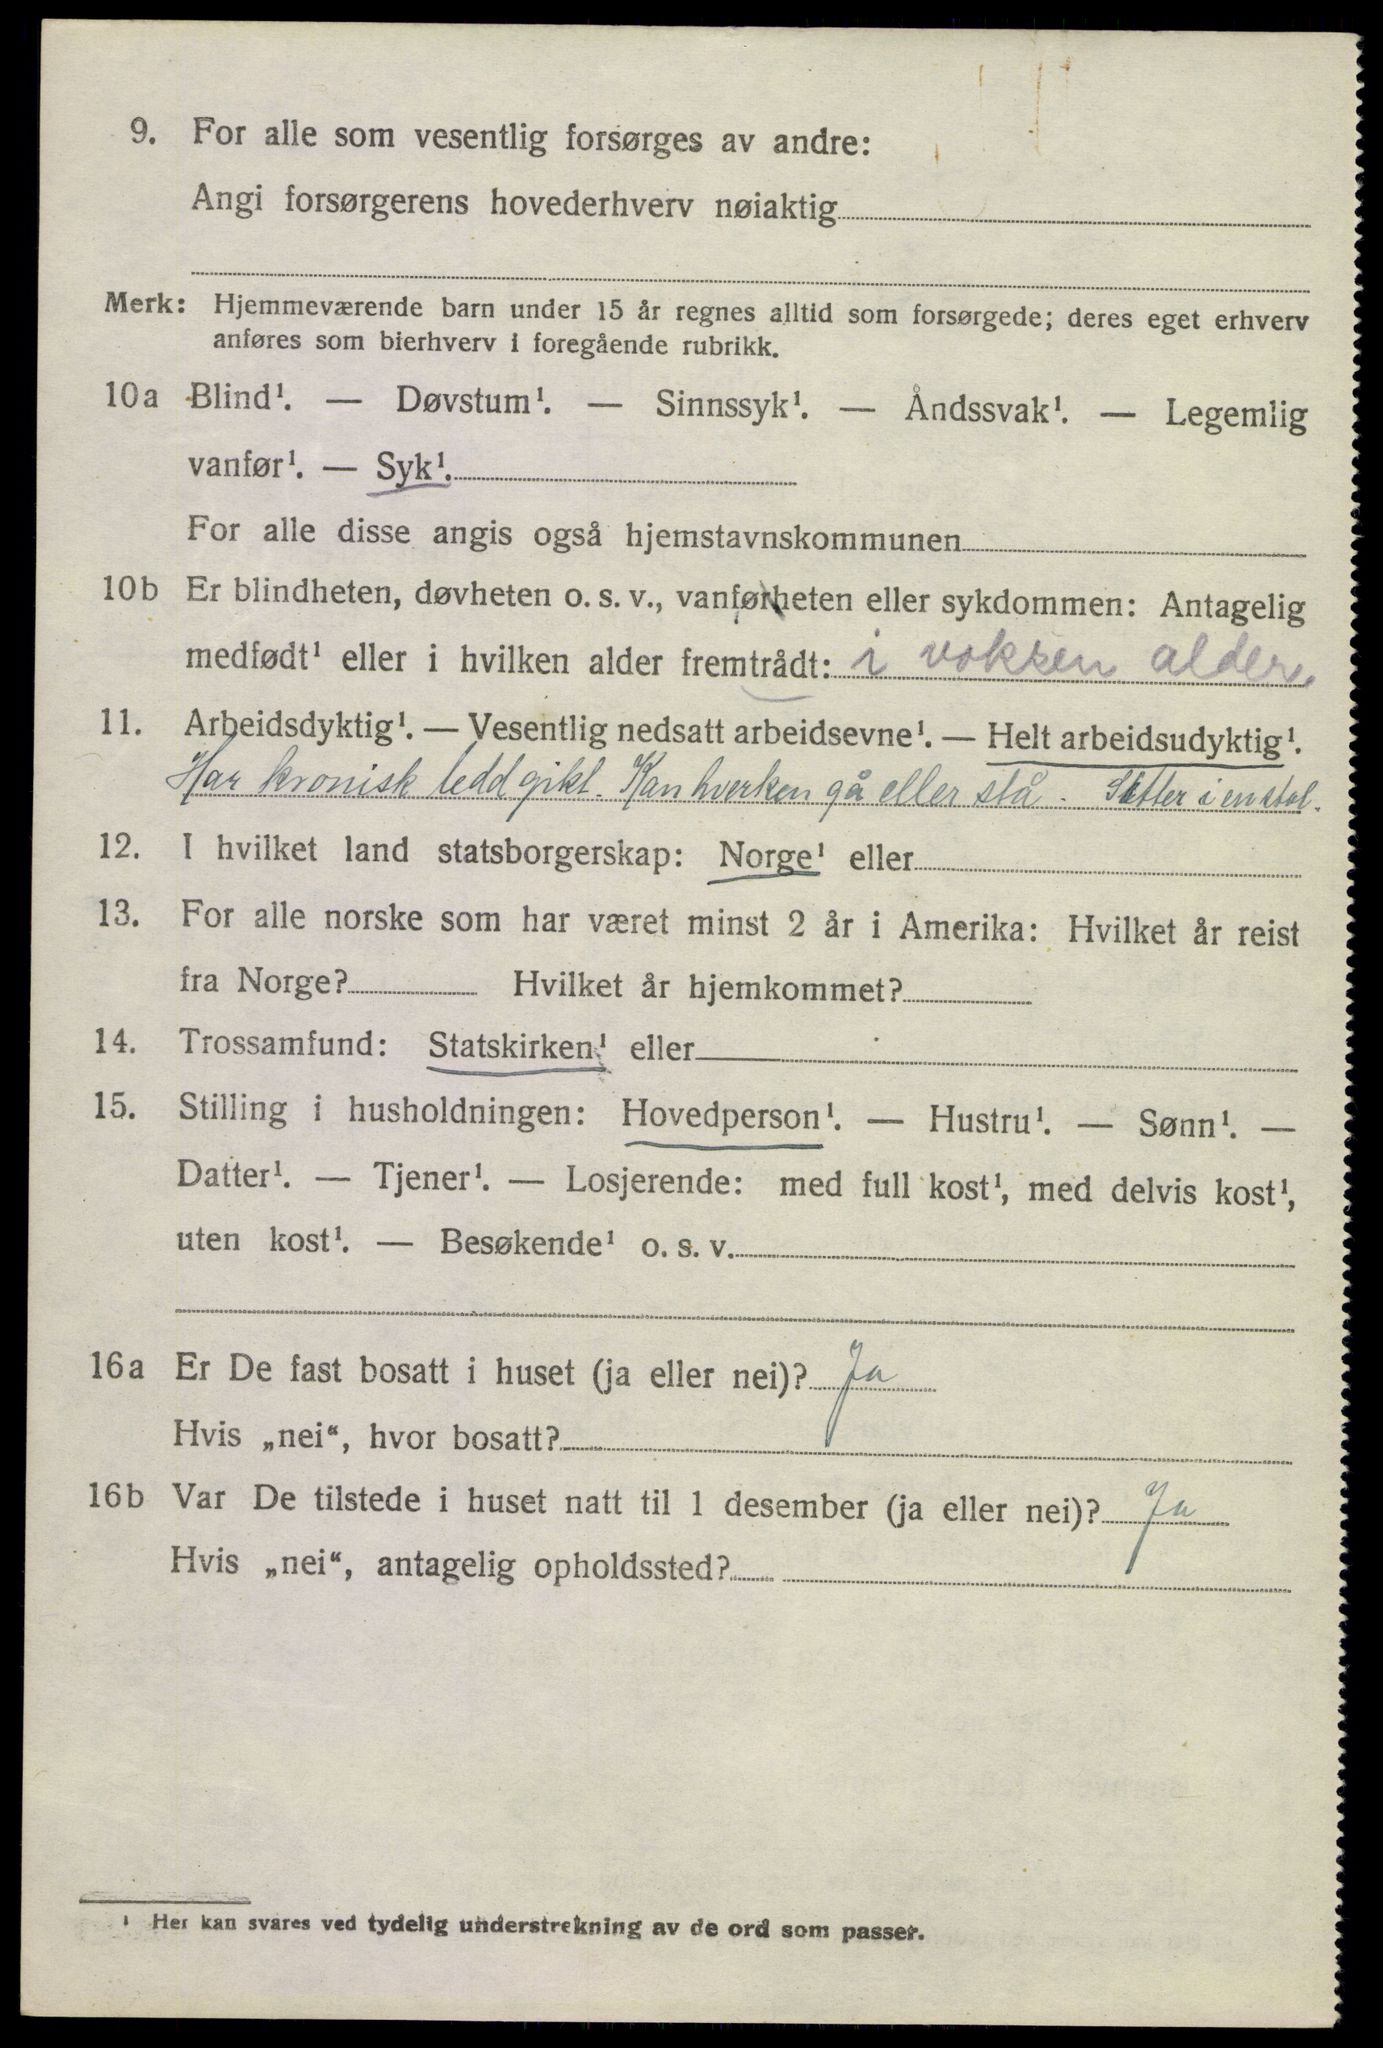 9. For alle som vesentlig forsørges av andre:
Angi forsørgerens hovederhverv nøiaktig
Merk: Hjemmeværende barn under 15 år regnes alltid som forsørgede; deres eget erhverv
anføres som bierhverv i foregående rubrikk.
10a Blind¹. — Døvstum¹. — Sinnssyk¹. — Åndssvak¹. — Legemlig
vanfør¹. — Syk¹.
For alle disse angis også hjemstavnskommunen
10b Er blindheten, døvheten o. s. v., vanførheten eller sykdommen: Antagelig
medfødt¹ eller i hvilken alder fremtrådt: i voksen alder
11. Arbeidsdyktig¹. — Vesentlig nedsatt arbeidsevne¹. — Helt arbeidsudyktig¹.
Har kronisk leddgikt. Kan hverken gå eller stå. Sitter i en stol.
12. I hvilket land statsborgerskap: Norge¹ eller
13. For alle norske som har været minst 2 år i Amerika: Hvilket år reist
fra Norge? Hvilket år hjemkommet?
14. Trossamfund: Statskirken¹ eller
15. Stilling i husholdningen: Hovedperson¹. — Hustru¹. — Sønn¹. —
Datter¹. — Tjener¹. — Losjerende: med full kost¹, med delvis kost¹,
uten kost¹. — Besøkende¹ o. s. v.
16a Er De fast bosatt i huset (ja eller nei)? Ja
Hvis „nei“, hvor bosatt?
16b Var De tilstede i huset natt til 1 desember (ja eller nei)? Ja
Hvis „nei“, antagelig opholdssted?
¹ Her kan svares ved tydelig understrekning av de ord som passer.